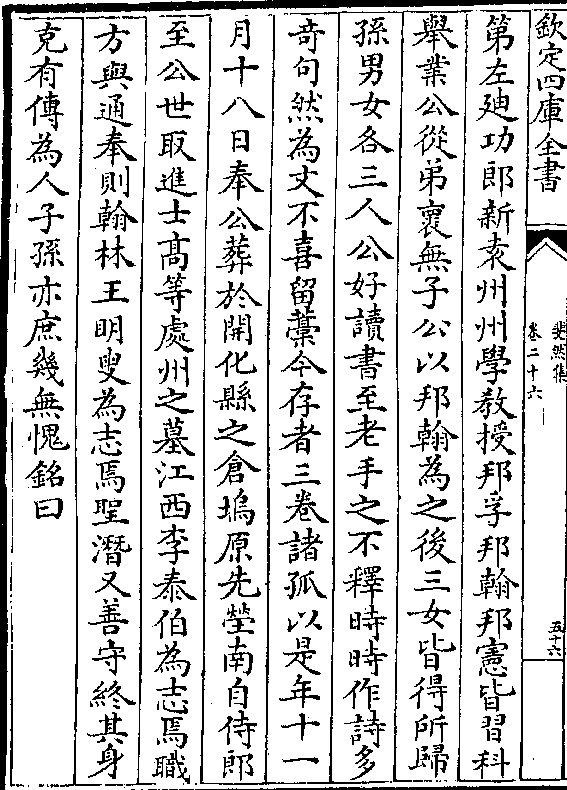 欽定四庫全書
斐然集
卷二十六
五十六
第左廸功郎新袁州州學教授邦孚邦翰邦憲皆習科
舉業公從弟襄無子公以邦翰為之後三女皆得所歸
孫男女各三人公好讀書至老手之不釋時時作詩多
竒句然為文不喜留藁今存者三卷諸孤以是年十一
月十八日奉公葬於開化縣之倉塢原先塋南自侍郎
至公世取進士髙等處州之墓江西李泰伯為志焉職
方與通奉則翰林王明叟為志焉聖潛又善守終其身
克有傳為人子孫亦庶幾無愧銘曰